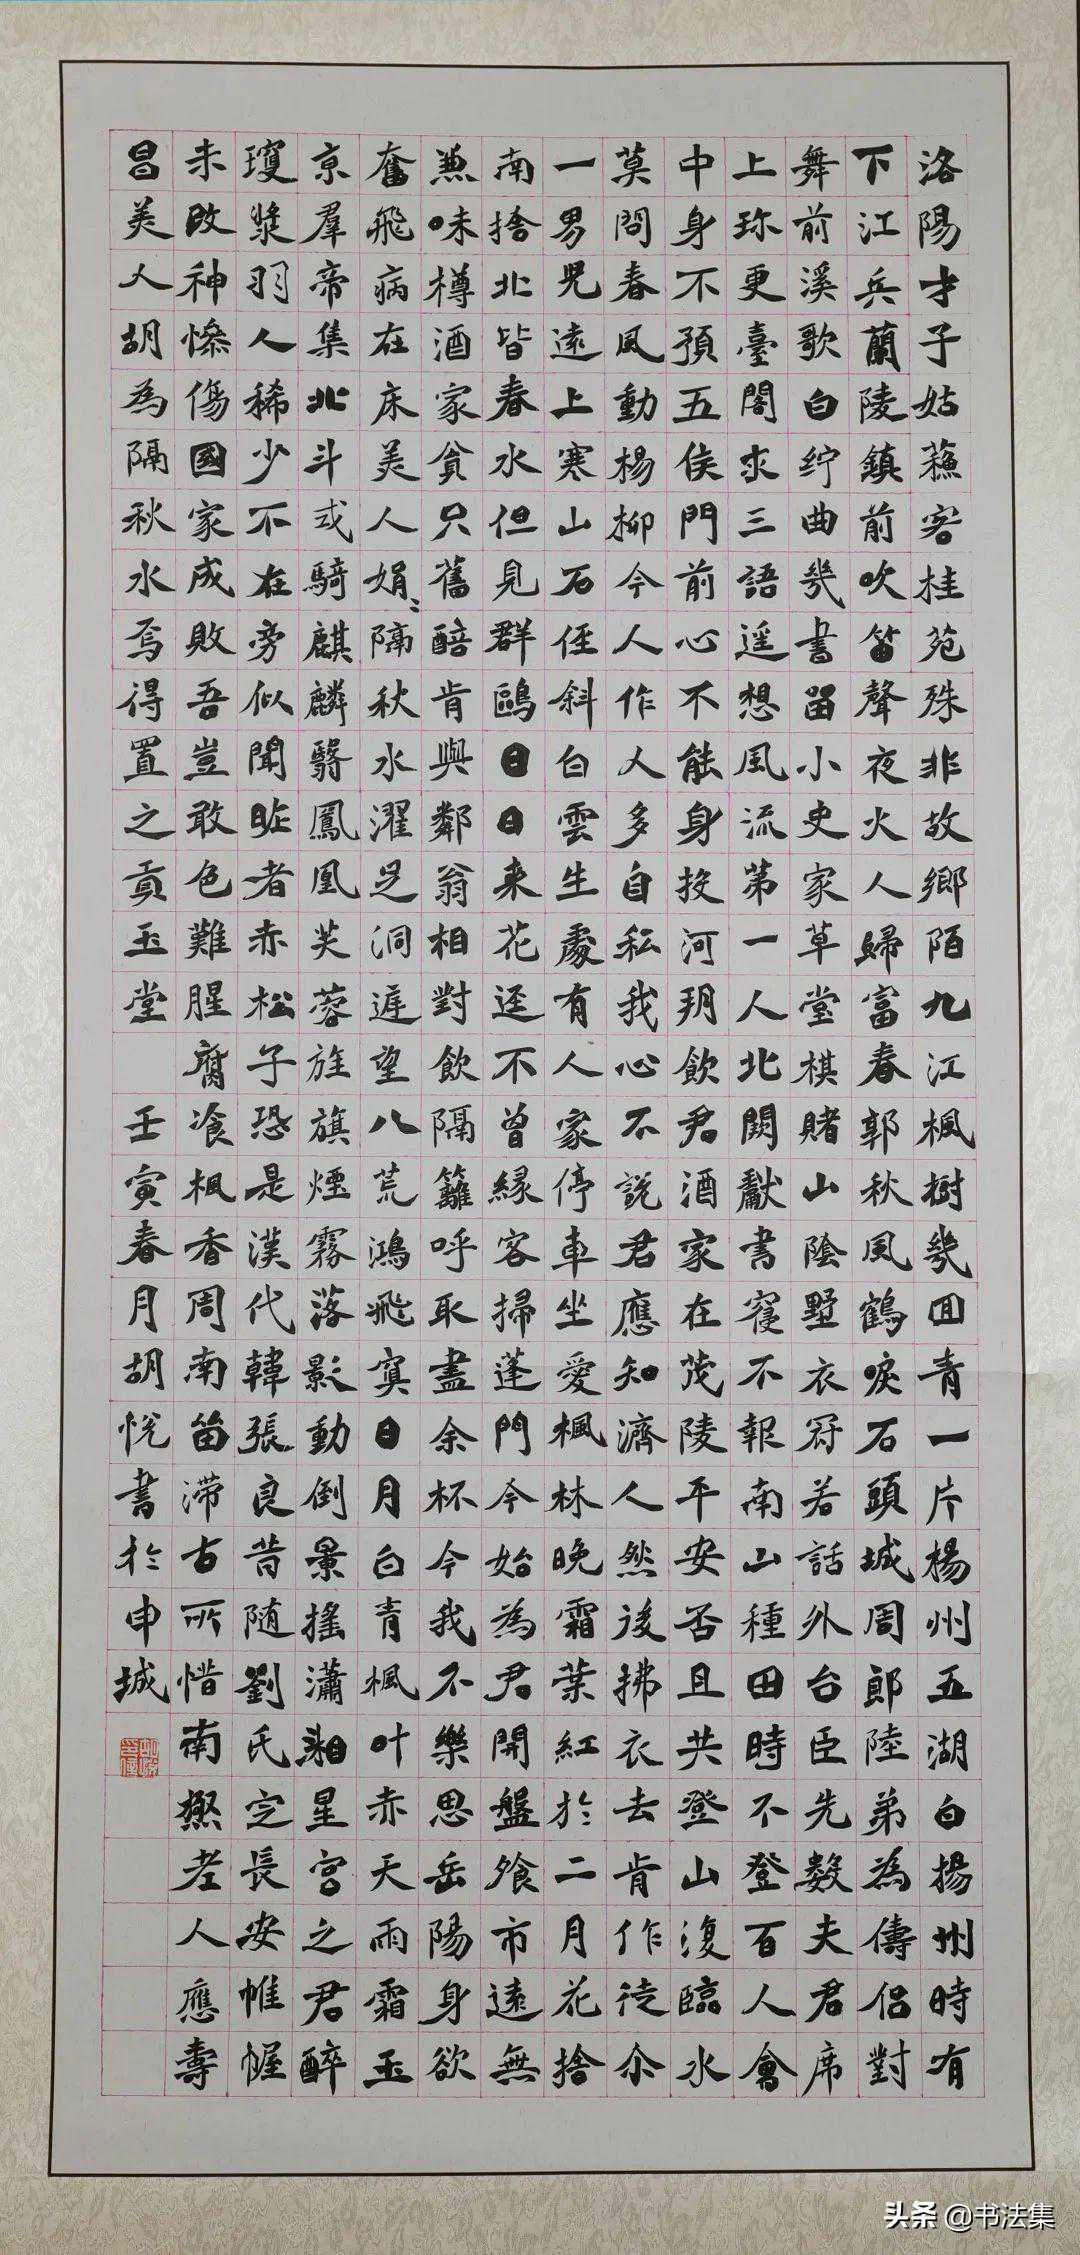 洛陽才子姑蘇客桂苑殊非故鄉陌九江楓樹幾回青一片楊州五湖白揚州時有
下江兵蘭陵鎮前吹笛聲夜火人歸富春郭秋風鶴唳石頭城周郎陸弟為儔侶對
舞前溪歌白紵曲幾書留小史家草堂棋賭山陰墅衣冠若話外台臣先數夫君席
上珎更臺閣求三語遥想風流第一人北闕獻書寢不報南山種田時不登百人會
中身不預五侯門前心不能身投河玥飲君酒家在茂陵平安否且共登山復臨水
莫問春風動楊柳今人作人多自私我心不說君應知濟人然後拂衣去肯作徒尒
一男兒遠上寒山石径斜白雲生處有人家停車坐愛楓林晚霜葉紅於二月花舍
南捨北皆春水但見群鷗日日来花逕不曾緣客掃蓬門今始為君開盤飧市遠無
兼味樽酒家貧只舊醅肯與鄰翁相對飲隔籬呼取盡余杯今我不樂思岳陽身欲
奮飛病在床美人娟〻隔秋水濯足洞遅望八荒鴻飛冥日月白青楓叶赤天雨霜玉
京羣帝集北斗或騎麒麟翳鳳凰芙蓉旌旗煙霧落影動倒景搖瀟湘星宮之君醉
瓊漿羽人稀少不在旁似聞昨者赤松子恐是漢代韓張良昔随劉氏定長安帷幄
未改神慘傷國家成敗吾豈敢色難腥腐飡楓香周南留滞古所惜南極老人應壽
昌美人胡為隔秋水焉得置之貢玉堂 壬寅春月胡悅書於申城
头条 @书法集